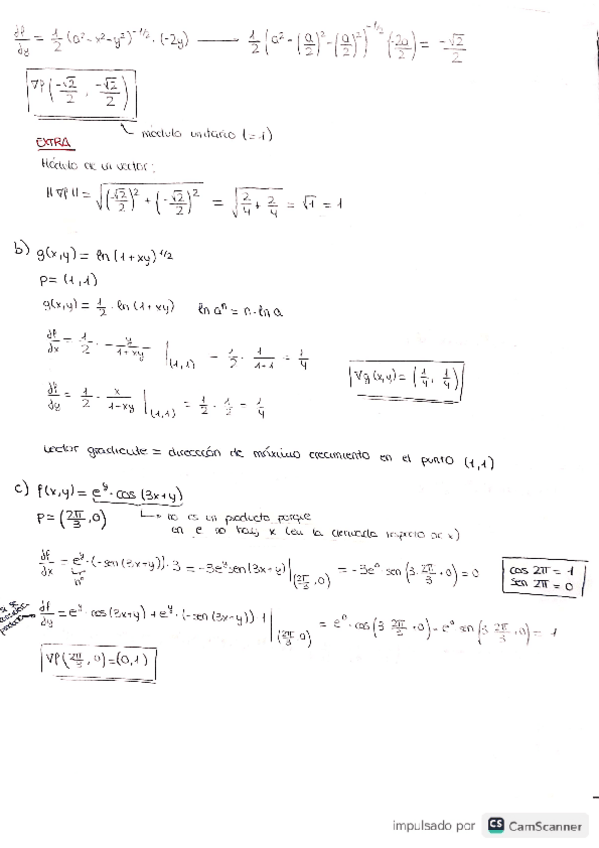 df/dy = 1/2 (a² - x² - y²)^(-1/2) · (-2y) —— 1/2 (a² - (a/2)² - (a/2)²)^(-1/2) (-2a/2) = -√2/2
∇P (-√2/2 , -√2/2)
módulo unitario (=1)
EXTRA
Módulo de un vector:
||∇P|| = √((-√2/2)² + (-√2/2)²) = √(2/4 + 2/4) = √1 = 1
b) g(x,y) = ln (1+xy)^(1/2)
P = (1,1)
g(x,y) = 1/2 · ln (1+xy) ln aⁿ = n·ln a
df/dx = 1/2 · y/(1+xy) |(1,1) = 1/2 · 1/(1+1) = 1/4
∇g(x,y) = (1/4, 1/4)
df/dy = 1/2 · x/(1+xy) |(1,1) = 1/2 · 1/2 = 1/4
vector gradiente = dirección de máximo crecimiento en el punto (1,1)
c) f(x,y) = e^y · cos (3x+y)
P = (2π/3, 0) no es un producto porque
en e no hay x (en la derivada respecto de x)
df/dx = e^y · (-sen (3x+y)) · 3 = -3e^y sen (3x+y) |(2π/3, 0) = -3e⁰ sen (3·2π/3 + 0) = 0
nº
cos 2π = 1
sen 2π = 0
df/dy = e^y · cos (3x+y) + e^y · (-sen (3x+y)) · 1 |(2π/3, 0) = e⁰ · cos (3·2π/3 + 0) - e⁰ sen (3·2π/3 + 0) = 1
∇P (2π/3, 0) = (0,1)
impulsado por CS CamScanner